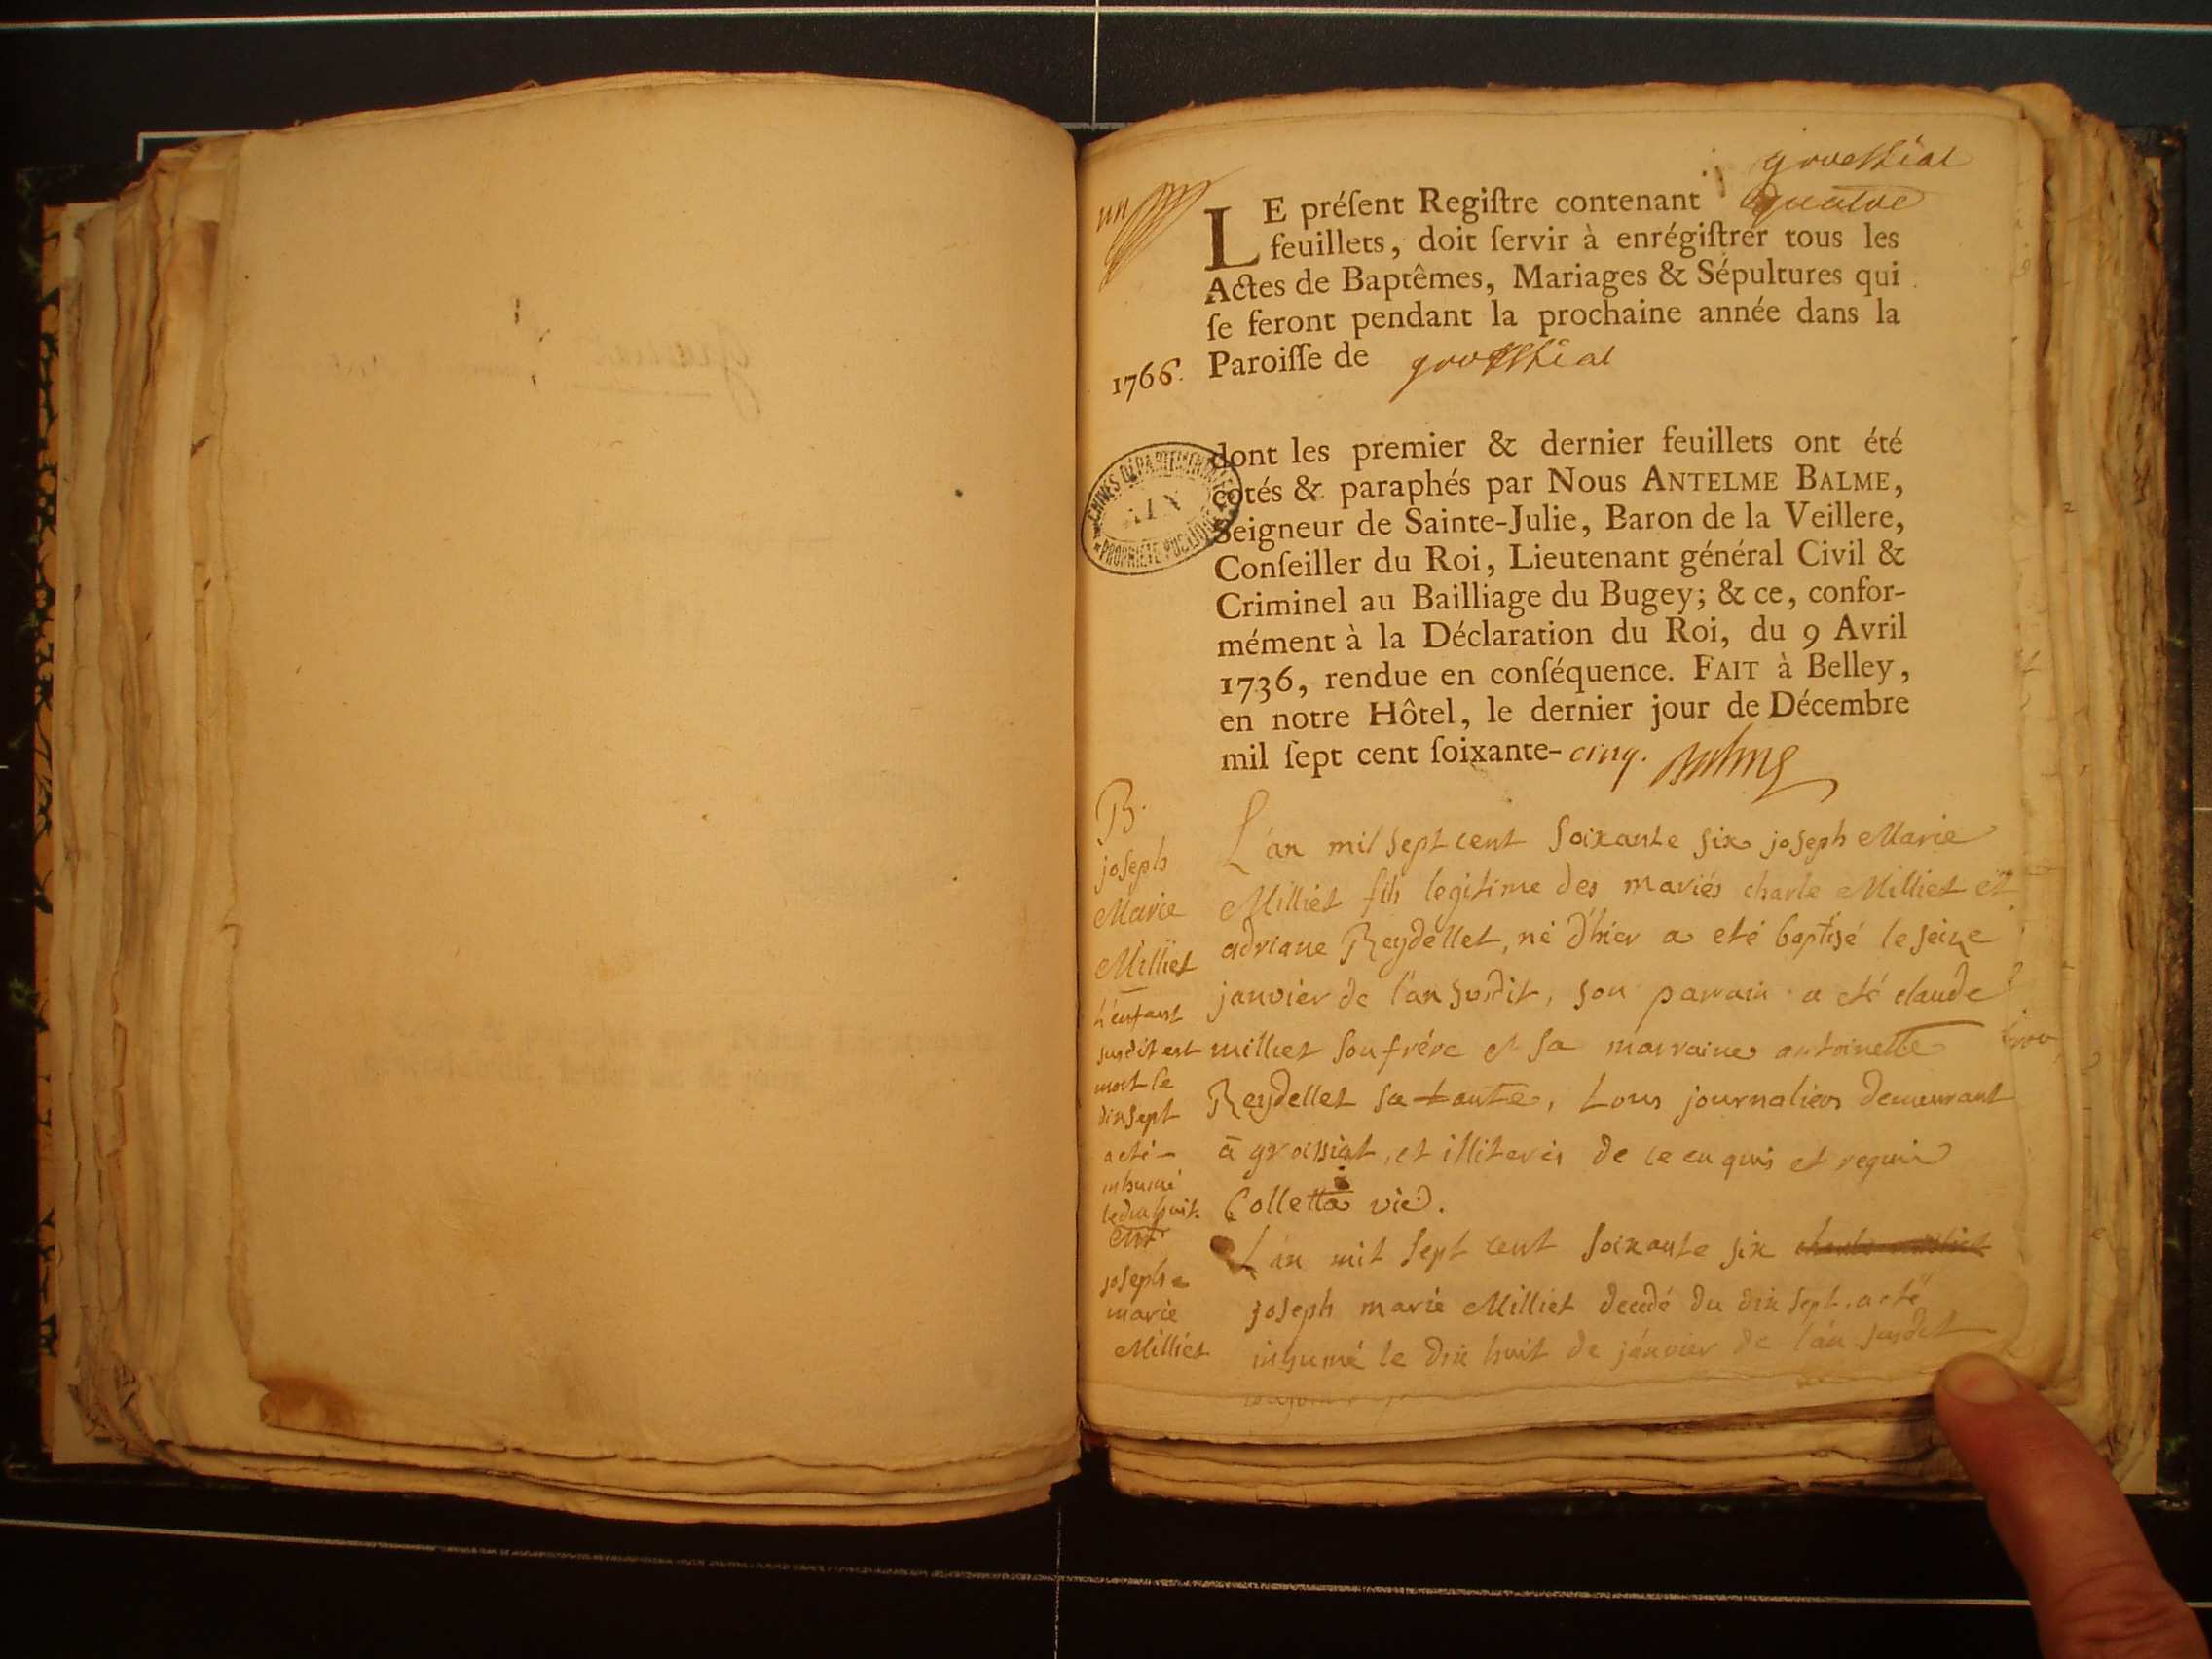 groissiat
un
LE préſent Regiſtre contenant quatre
feuillets, doit ſervir à enrégiſtrer tous les
Actes de Baptêmes, Mariages & Sépultures qui
ſe feront pendant la prochaine année dans la
1766. Paroiſſe de groissiat
dont les premier & dernier feuillets ont été
cotés & paraphés par Nous ANTELME BALME,
Seigneur de Sainte-Julie, Baron de la Veillere,
Conſeiller du Roi, Lieutenant général Civil &
Criminel au Bailliage du Bugey; & ce, confor-
mément à la Déclaration du Roi, du 9 Avril
1736, rendue en conſéquence. FAIT à Belley,
en notre Hôtel, le dernier jour de Décembre
mil ſept cent ſoixante-cinq. Balme
CHIVES DÉPARTEMENTALES
AIN
PROPRIÉTÉ PUBLIQUE
B.
joseph
Marie
Milliet
L'enfant
susdit est
mort le
dixsept
a eté
inhumé
le dix huit.
L'an mil sept cent soixante six joseph Marie
Milliet fils legitime des mariés charle Milliet et
adriane Reydellet, né d'hier a eté baptisé le seize
janvier de l'an susdit, son parrain a eté claude
milliet son frére et sa marraine antoinette
Reydellet sa tante, tous journaliers demeurant
à groissiat, et illiterés de ce enquis et requis
Colletta vic.
joseph
marie
Milliet
L'an mil sept cent soixante six
joseph marie Milliet decedé du dix sept. a eté
inhumé le dix huit de janvier de l'an susdit